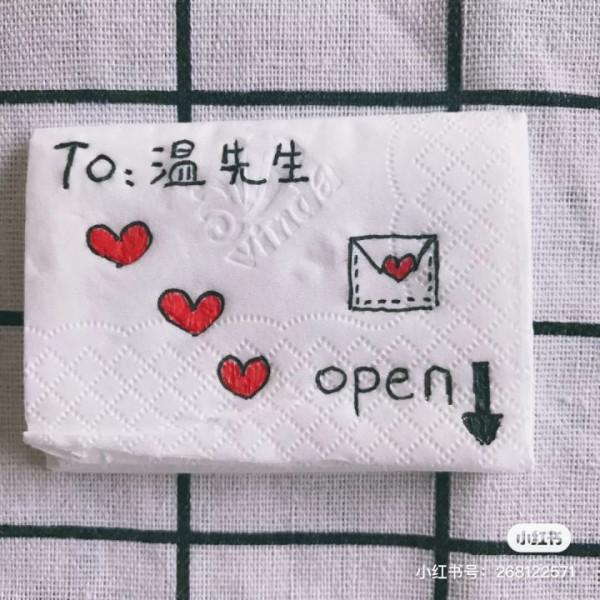 To: 温先生
vinda
open
小红书
小红书号: 268122571